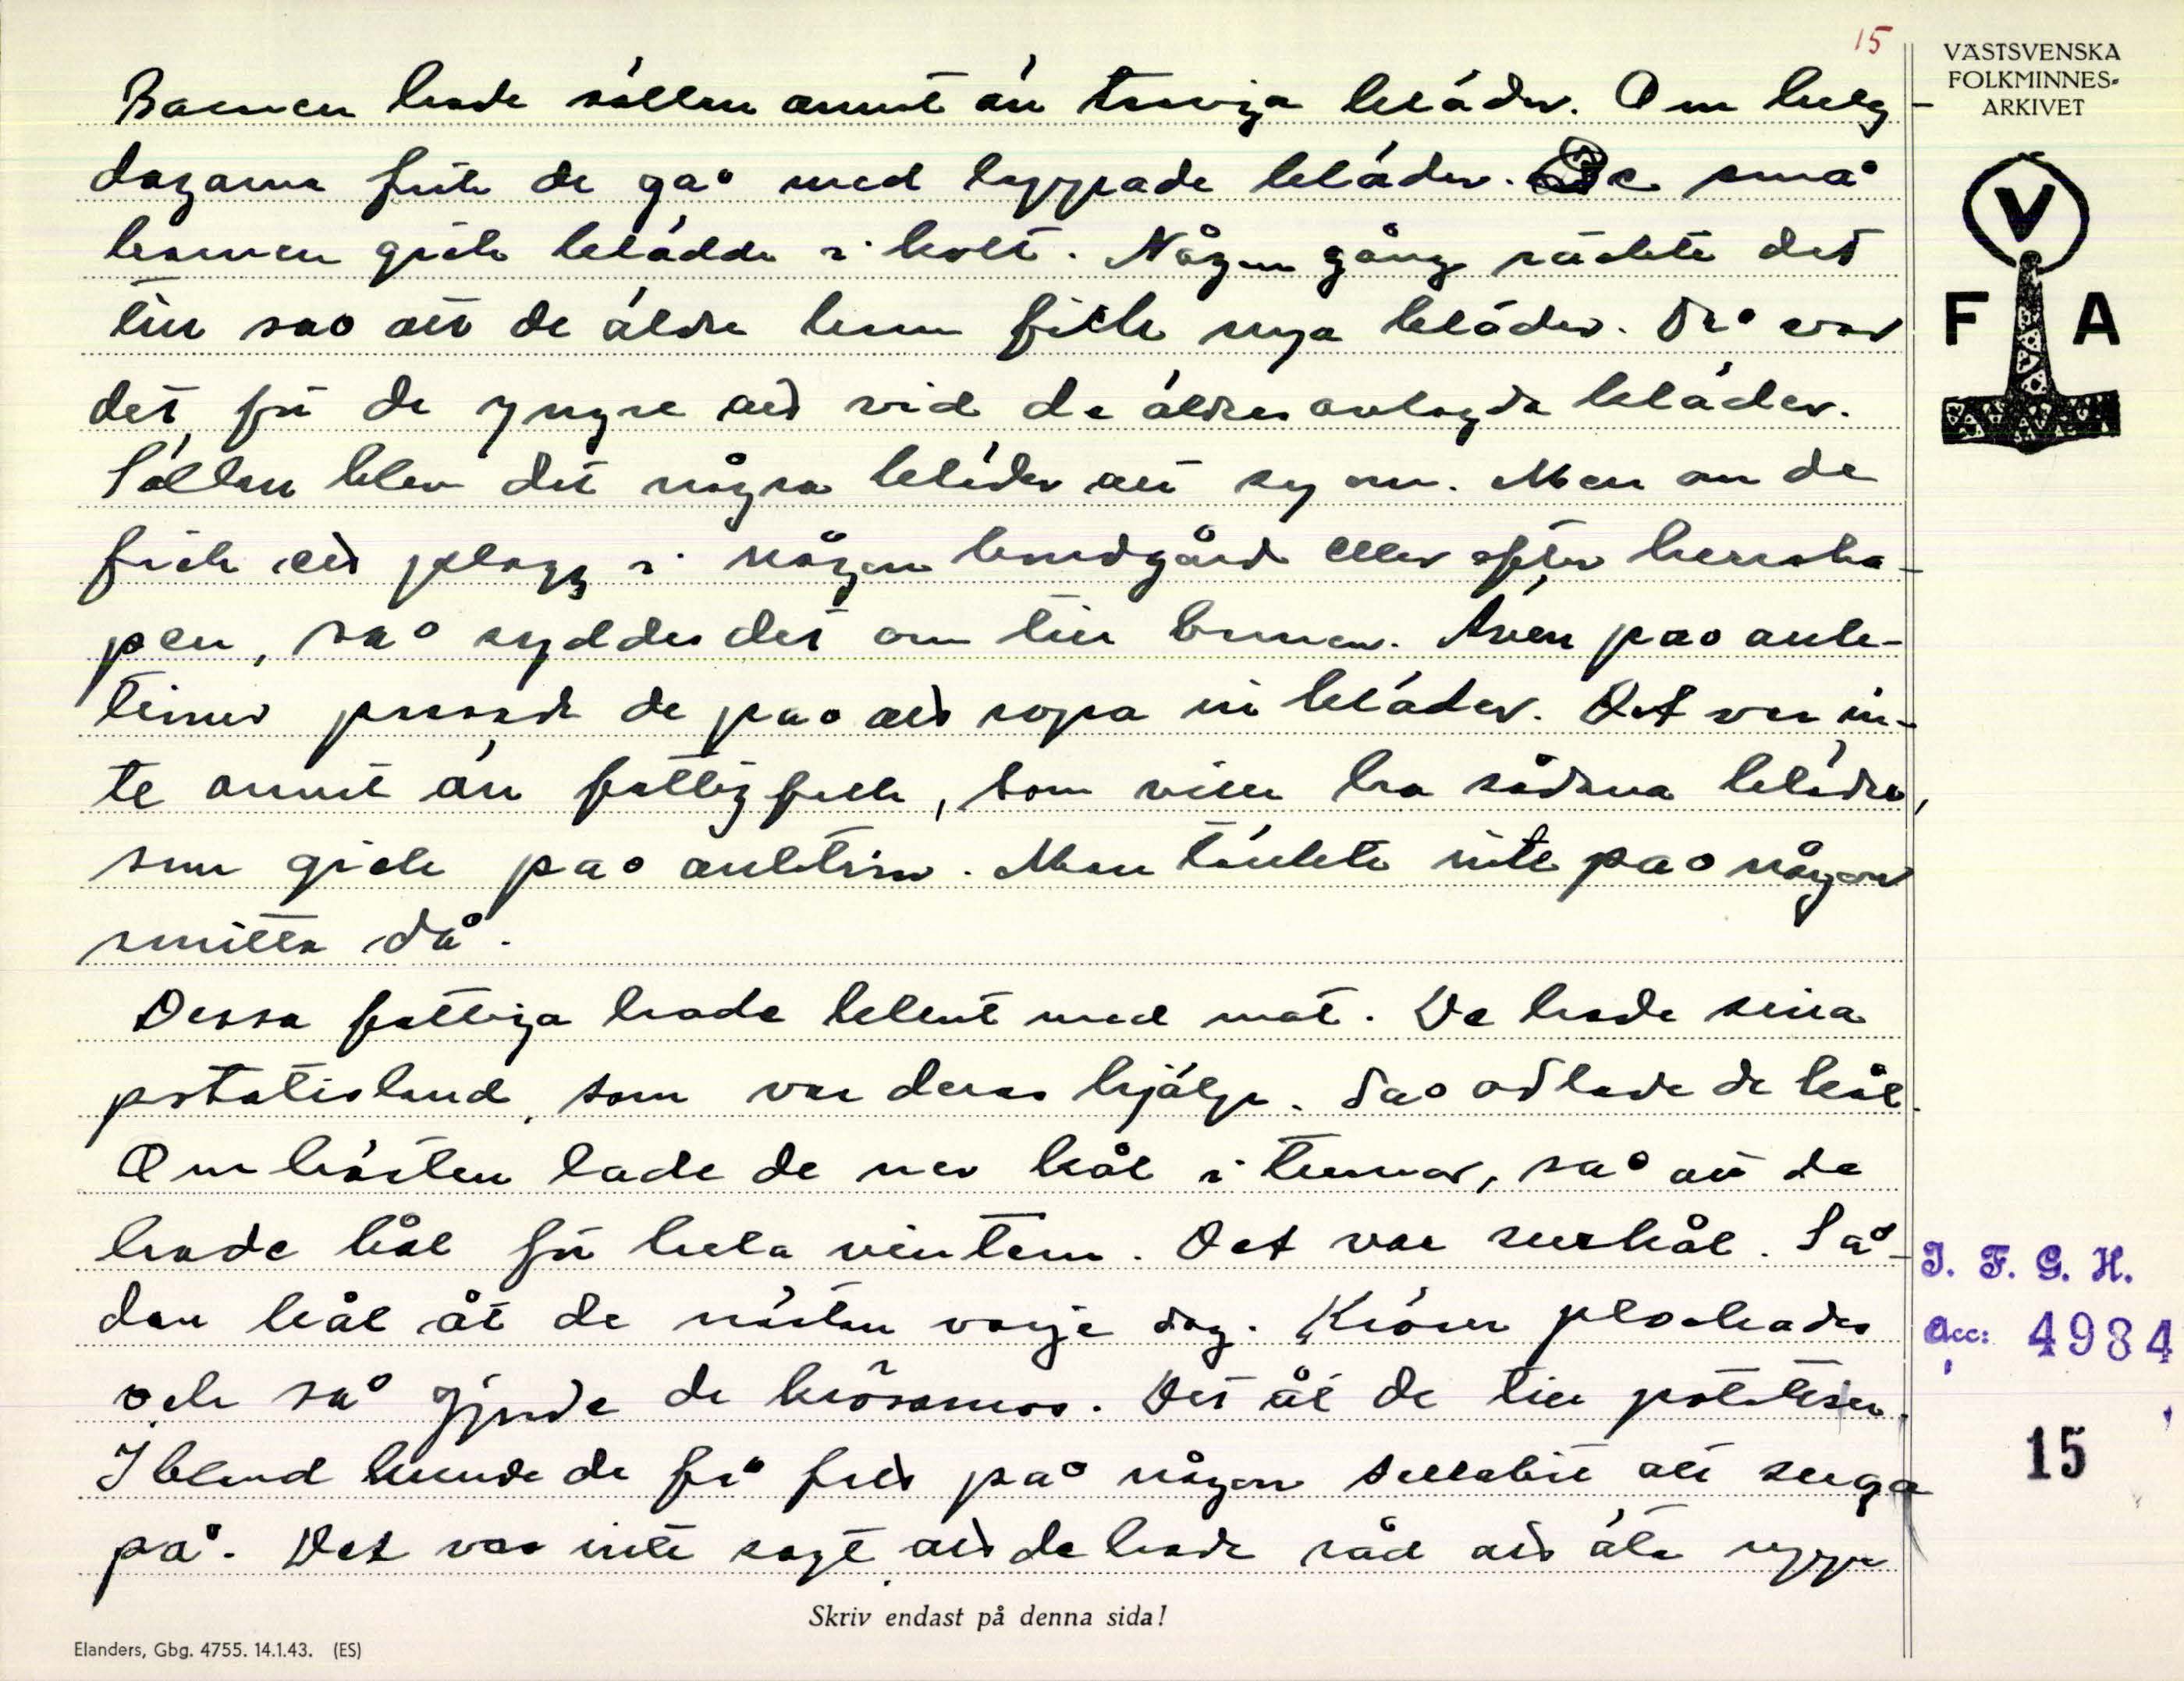 15
VÄSTSVENSKA
FOLKMINNES-
ARKIVET
Barnen hade sällan annat än trasiga kläder. Om helg-
dagarna fick de gå med lappade kläder. De små
barnen gick klädda i kolt. Någon gång räckte det
till så att de äldre barn fick nya kläder. Då var
det för de yngre att vid de äldres avlagda kläder.
Sällan blev det några kläder att sy om. Men om de
fick ett plagg i någon bondgård eller efter herrska-
pen, så syddes det om till barnen. Även på auk-
tioner passade de på att ropa in kläder. Det var in-
te annat än fattigfolk, som ville ha sådana kläder,
som gick på auktion. Man tänkte inte på någon
smitta då.
Dessa fattiga hade klent med mat. De hade sina
potatisland, som var deras hjälp. Så odlade de kål.
Om hösten lade de ner kål i tunnor, så att de
hade kål för hela vintern. Det var surkål. Så-
dan kål åt de nästan varje dag. Krösen plockades
och så gjorde de krösamos. Det åt de till potatisen.
Ibland kunde de få fatt på någon sillabit att suga
på. Det var inte sagt att de hade råd att äta upp
V
F A
I. F. G. H.
Acc: 4984
15
Skriv endast på denna sida!
Elanders, Gbg. 4755. 14.1.43. (ES)